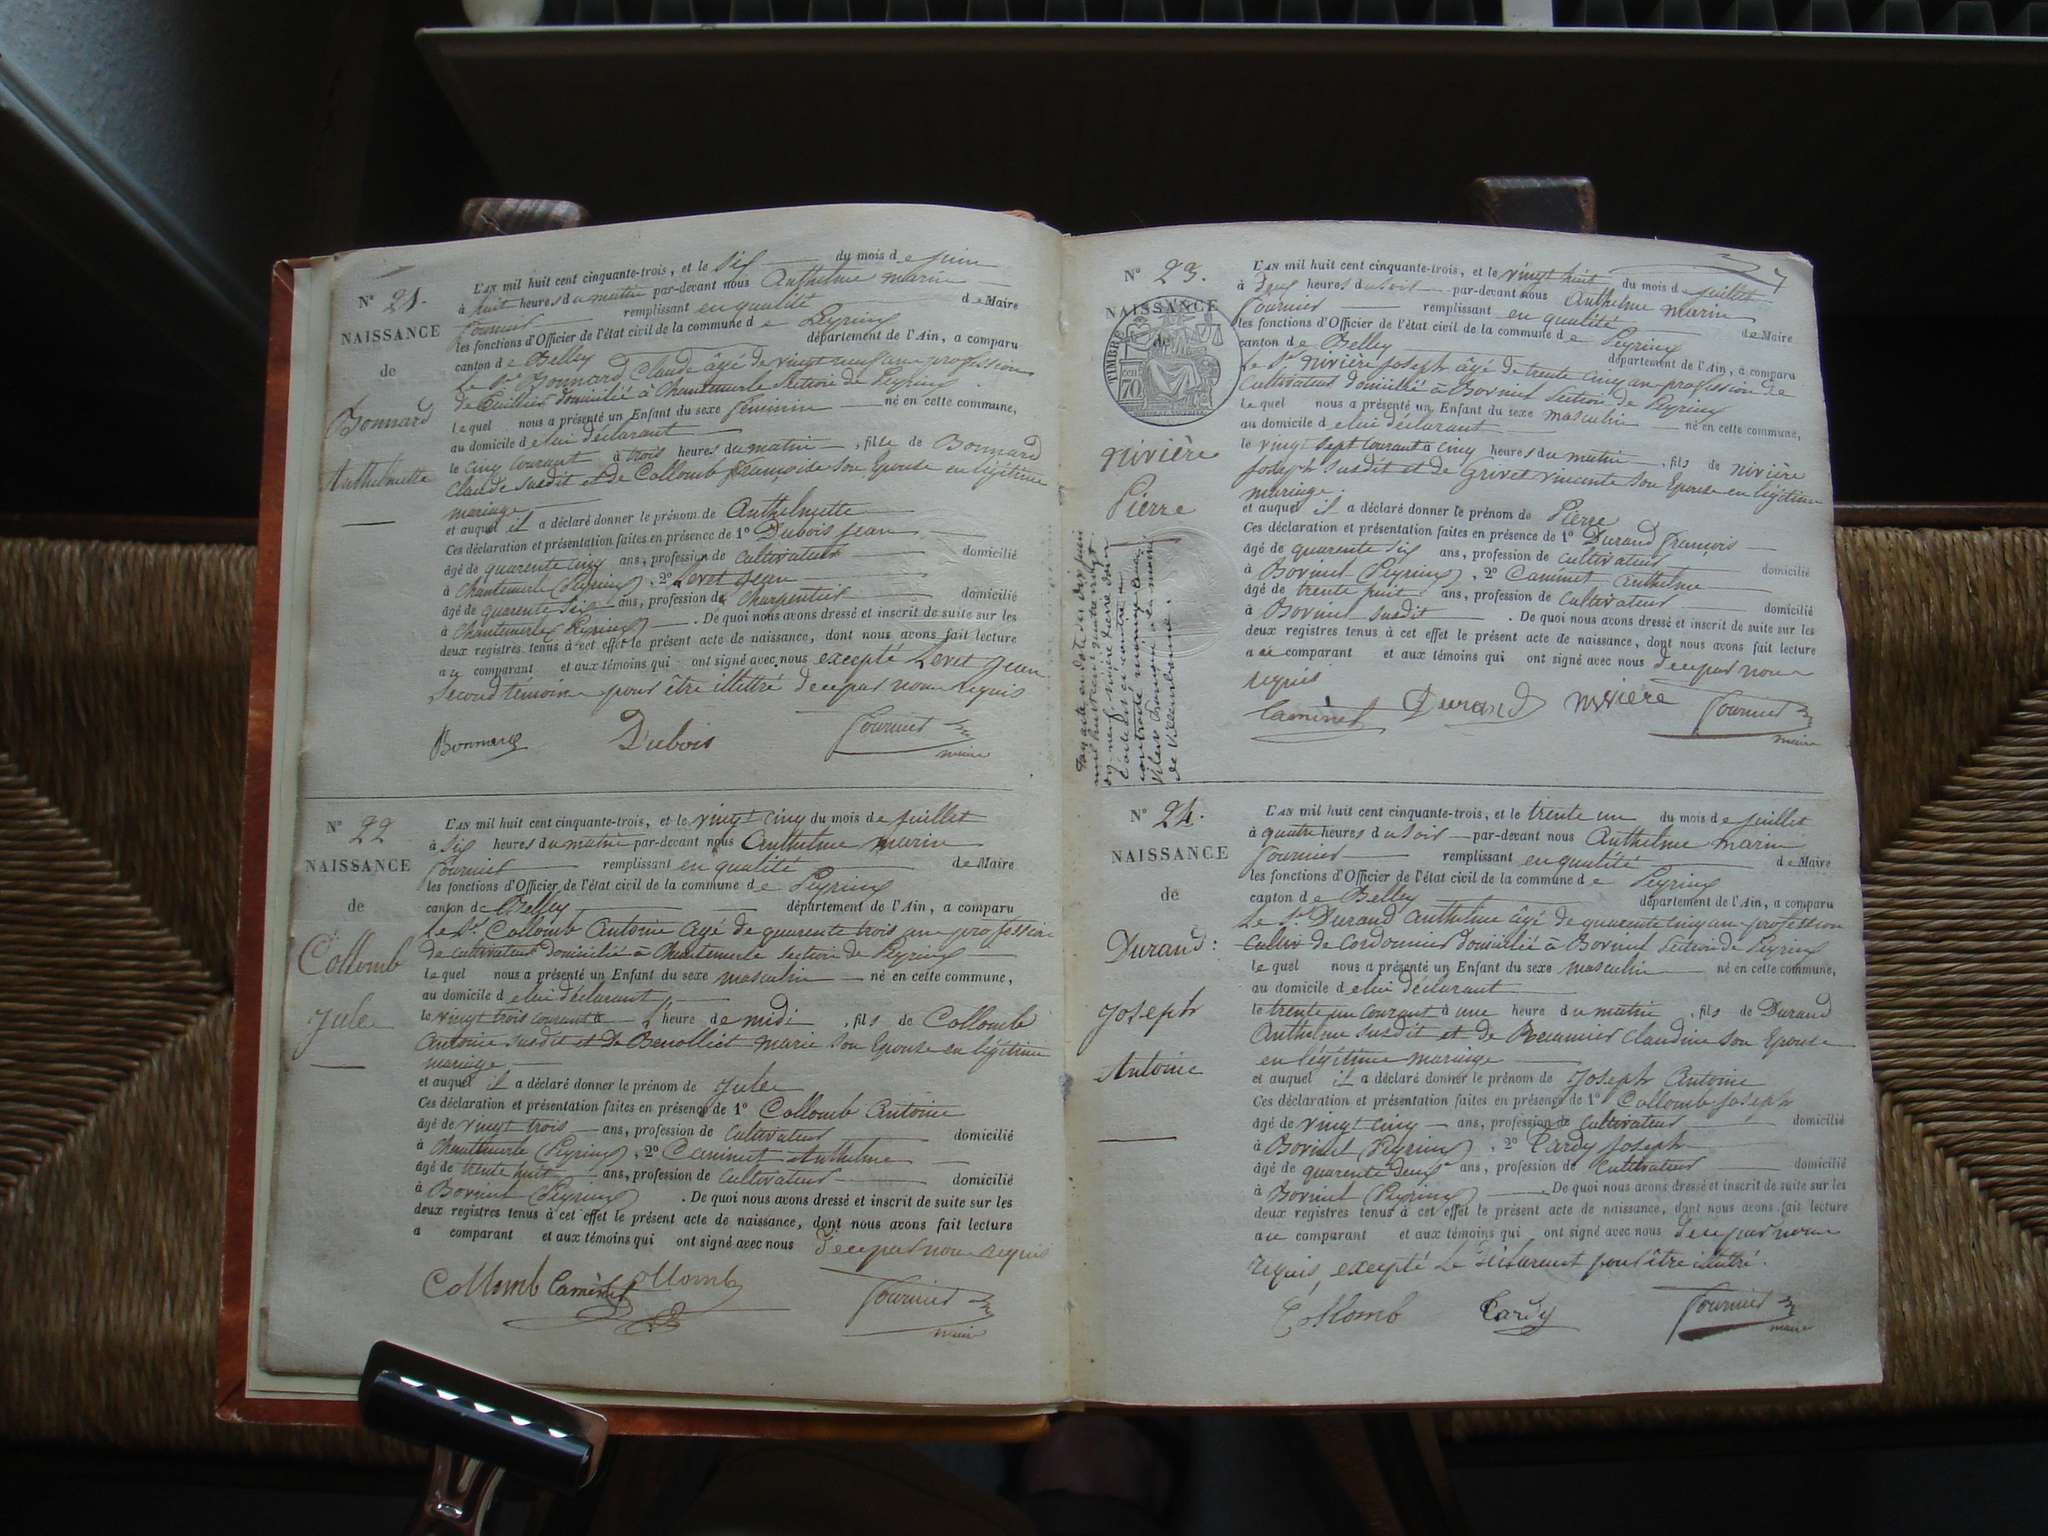 N° 21.
NAISSANCE
de
Bonnard
Anthelmette
L'AN mil huit cent cinquante-trois, et le six du mois de juin
à huit heures du matin par-devant nous Anthelme marin
fournier remplissant en qualité de Maire
les fonctions d'Officier de l'état civil de la commune de Peyrieux
canton de Belley département de l'Ain, a comparu
le Sr Bonnard Claude âgé de vingt neuf ans profession
de domicilié à Chantemerle section de Peyrieux
Lequel nous a présenté un Enfant du sexe féminin né en cette commune,
au domicile de lui déclarant
le cinq courant à trois heures du matin, fille de Bonnard
Claude susdit et de Collomb françoise son Epouse en légitime
mariage
et auquel il a déclaré donner le prénom de Anthelmette
Ces déclaration et présentation faites en présence de 1° Dubois jean
âgé de quarente cinq ans, profession de cultivateur domicilié
à Chantemerle (Peyrieux), 2° Levet jean
âgé de quarente six ans, profession de charpentier domicilié
à Chantemerle (Peyrieux). De quoi nous avons dressé et inscrit de suite sur les
deux registres tenus à cet effet le présent acte de naissance, dont nous avons fait lecture
au comparant et aux témoins qui ont signé avec nous excepté Levet jean
second témoin pour être illettré de ce par nous requis
Bonnard Dubois fournier
maire
N° 22
NAISSANCE
de
Collomb
Jules
L'AN mil huit cent cinquante-trois, et le vingt cinq du mois de juillet
à six heures du matin par-devant nous Anthelme marin
fournier remplissant en qualité de Maire
les fonctions d'Officier de l'état civil de la commune de Peyrieux
canton de Belley département de l'Ain, a comparu
le Sr Collomb Antoine agé de quarente trois ans profession
de cultivateur domicilié à Chantemerle section de Peyrieux
Lequel nous a présenté un Enfant du sexe masculin né en cette commune,
au domicile de lui déclarant
le vingt trois courant à l'heure de midi, fils de Collomb
Antoine susdit et de Benolliet marie son Epouse en légitime
mariage
et auquel il a déclaré donner le prénom de Jules
Ces déclaration et présentation faites en présence de 1° Collomb Antoine
âgé de vingt trois ans, profession de cultivateur domicilié
à Chantemerle (Peyrieux), 2° Caminet Anthelme
âgé de trente huit ans, profession de cultivateur domicilié
à Borvinel (Peyrieux). De quoi nous avons dressé et inscrit de suite sur les
deux registres tenus à cet effet le présent acte de naissance, dont nous avons fait lecture
a comparant et aux témoins qui ont signé avec nous de ce par nous requis
Collomb Caminet Collomb fournier
maire
7
N° 23.
NAISSANCE
de
TIMBRE
70
nivière
Pierre
L'AN mil huit cent cinquante-trois, et le vingt huit du mois de juillet
à deux heures du soir par-devant nous Anthelme marin
fournier remplissant en qualité de Maire
les fonctions d'Officier de l'état civil de la commune de Peyrieux
canton de Belley département de l'Ain, a comparu
le Sr nivière joseph âgé de trente cinq ans profession de
cultivateur domicilié à Borvinel section de Peyrieux
Lequel nous a présenté un Enfant du sexe masculin né en cette commune,
au domicile de lui déclarant
le vingt sept courant à cinq heures du matin, fils de nivière
joseph susdit et de Grivet vincente son Epouse en légitime
mariage.
et auquel il a déclaré donner le prénom de Pierre
Ces déclaration et présentation faites en présence de 1° Durand françois
âgé de quarente six ans, profession de cultivateur domicilié
à Borvinel (Peyrieux), 2° Caminet Anthelme
âgé de trente huit ans, profession de cultivateur domicilié
à Borvinel susdit. De quoi nous avons dressé et inscrit de suite sur les
deux registres tenus à cet effet le présent acte de naissance, dont nous avons fait lecture
au comparant et aux témoins qui ont signé avec nous de ce par nous
requis
Caminet Durand nivière fournier
maire
N° 24.
NAISSANCE
de
Durand:
Joseph
Antoine
L'AN mil huit cent cinquante-trois, et le trente un du mois de juillet
à quatre heures du soir par-devant nous Anthelme marin
fournier remplissant en qualité de Maire
les fonctions d'Officier de l'état civil de la commune de Peyrieux
canton de Belley département de l'Ain, a comparu
Le Sr Durand Anthelme âgé de quarente cinq ans profession
de Cordonnier domicilié à Borvinel section de Peyrieux
Lequel nous a présenté un Enfant du sexe masculin né en cette commune,
au domicile de lui déclarant
le trente un courant à une heure du matin, fils de Durand
Anthelme susdit et de Claudine son Epouse
en légitime mariage
et auquel il a déclaré donner le prénom de Joseph Antoine
Ces déclaration et présentation faites en présence de 1° Collomb joseph
âgé de vingt cinq ans, profession de cultivateur domicilié
à Borvinel (Peyrieux), 2° Tardy joseph
âgé de quarente deux ans, profession de cultivateur domicilié
à Borvinel (Peyrieux) De quoi nous avons dressé et inscrit de suite sur les
deux registres tenus à cet effet le présent acte de naissance, dont nous avons fait lecture
au comparant et aux témoins qui ont signé avec nous de ce par nous
requis, excepté le déclarant pour être illettré.
Collomb Tardy fournier
maire